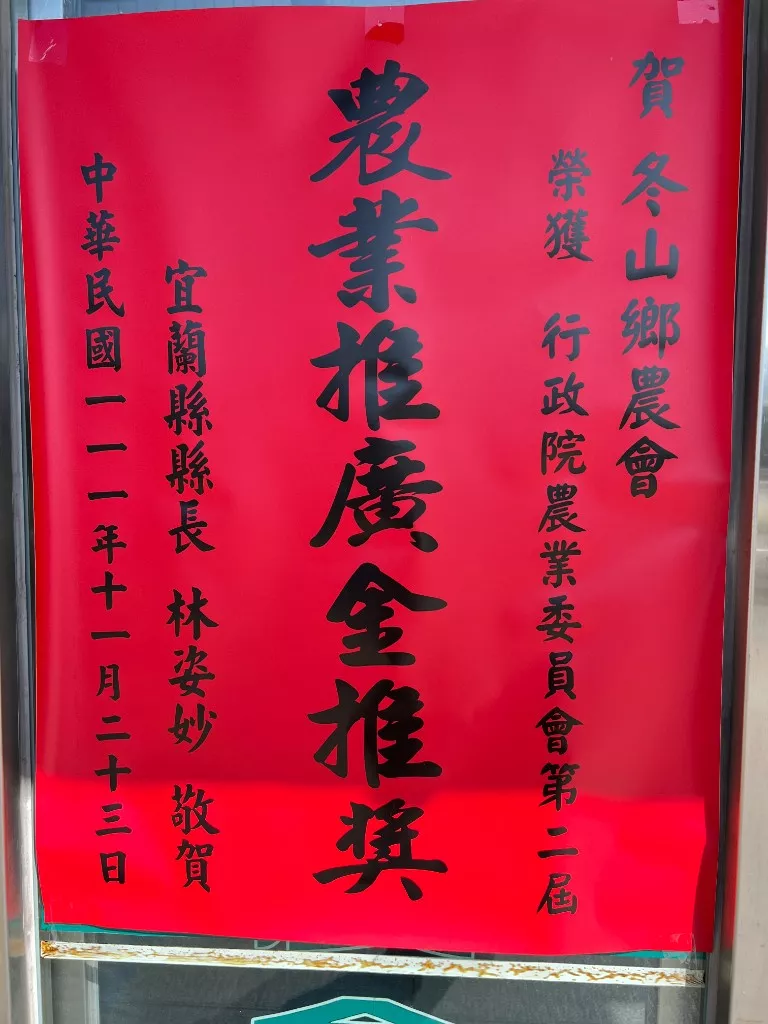 賀 冬山鄉農會
榮獲 行政院農業委員會第二屆
農業推廣金推獎
宜蘭縣縣長 林姿妙 敬賀
中華民國一一一年十一月二十三日